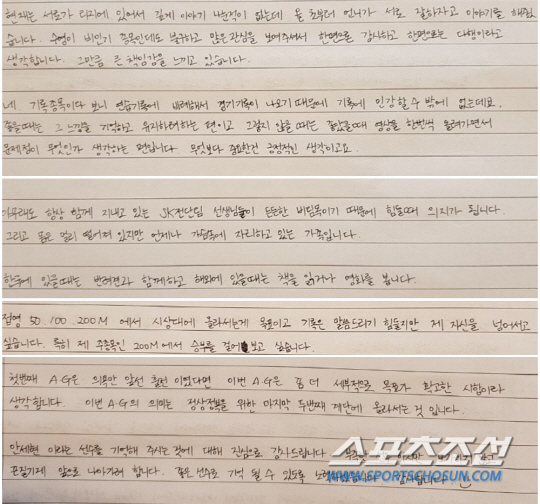 해외는 서로가 타지에 있어서 길게 이야기 나눈적이 없는데 올 초부터 언니가 서로 잘하자고 이야기를 해줬
습니다. 수영이 비인기 종목인데도 불구하고 많은 관심을 보여주셔서 한편으로 감사하고 한편으로는 다행이라고
생각합니다. 그만큼 큰 책임감을 느끼고 있습니다.
네 기록종목이다 보니 연습기록에 비례해서 경기기록이 나오기 때문에 기록에 민감할 수 밖에 없는데요.
좋을때는 그 느낌을 기억하고 유지하려하는 편이고 그렇지 않을 때는 좋았을때 영상을 한번씩 돌려가면서
문제점이 무엇인가 생각하는 편입니다 무엇보다 중요한건 긍정적인 생각이고요.
아무래도 항상 함께 지내고 있는 SK전담팀 선생님들이 든든한 버팀목이기 때문에 힘들때 의지가 됩니다.
그리고 몸은 멀리 떨어져 있지만 언제나 가슴속에 자리하고 있는 가족입니다.
한국에 있을때는 반려견과 함께하고 해외에 있을때는 책을 읽거나 영화를 봅니다.
접영 50.100.200M 에서 시상대에 올라서는게 목표이고 기록은 말씀드리기 힘들지만 제 자신을 넘어서고
싶습니다. 특히 제 주종목인 200M에서 승부를 걸어보고 싶습니다.
첫번째 A.G은 의욕만 앞선 출전 이였다면 이번 A.G은 좀 더 세부적으로 목표가 확고한 시합이라
생각합니다. 이번 A.G의 의미는 정상정복을 위한 마지막 두번째 계단에 올라서는 것 입니다.
안세현 이라는 선수를 기억해 주시는것에 대해 진심으로 감사드립니다.
끈질기게 앞으로 나아가려 합니다. 좋은 선수로 기억 될 수 있도록 노력
스포츠조선
WWW.SPORTSCHOSUN.COM